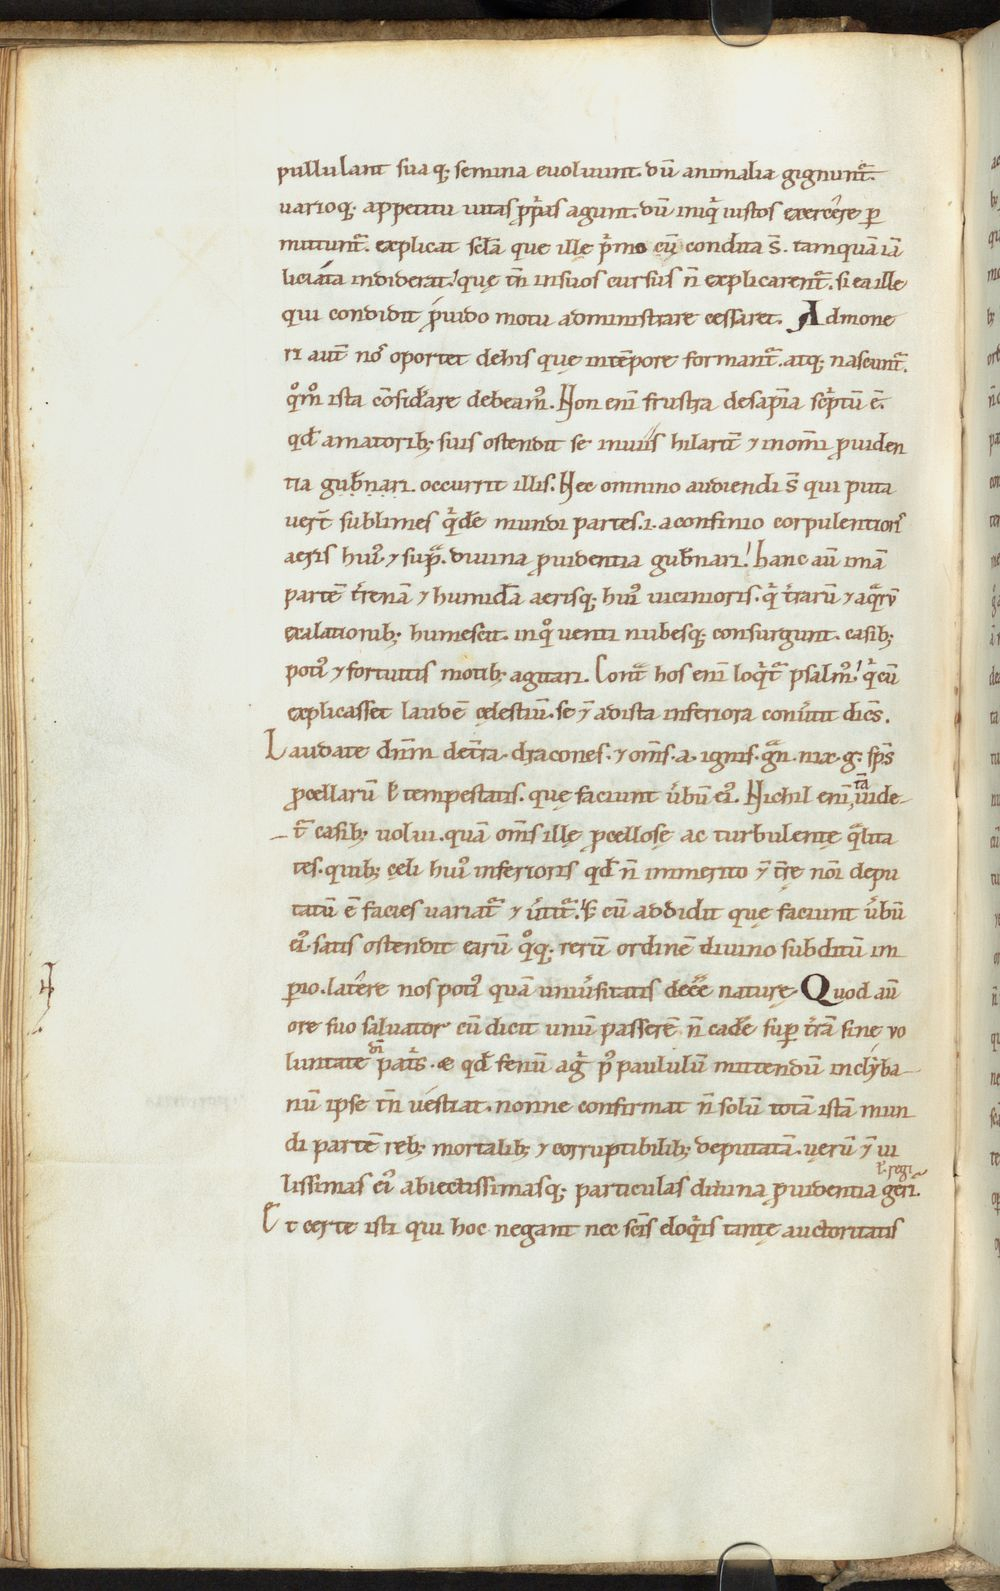 pullulant sua q; semina evoluunt. dū animalia gignunt᷑.
uarioq; appetitu uitas p̄pͥas agunt. dū iniqͥ iustos exercēre ꝑ
mittunt᷑. explicat sclā que illę pͥmo cū condita s̄. tamquā iā
liciata indiderat! quę tn̄ insuos cursus n̄ explicarent᷑. si ea ille
qui condidit ꝓuido motu administrare cessaret. Admone
ri aut̄ nos oportet dehis que intēpore formant᷑. atq; nascunt᷑.
qͦmͦ ista cōsiđare debeamꝰ. Non eni frustra desapīa scͥptū ē.
qđ amatorib; suis ostendit se inuiis hilarit̄ ⁊ inom̄i ꝓuiden
tia gub̄nari. occurrit illis. Nec omnino audiendi s̄ qui puta
uert̄ sublimes qͥdē mundi partes .i. aconfinio corpulentioris
aeris huiꝰ ⁊ supͣ. diuina ꝓuidentia gub̄nari! hanc aū imā
partē t̄renā ⁊ humidā aerisq; huiꝰ uicinioris. qͥ t̄rarū ⁊ aqͣrū
exalationib; humescit. inqͦ uenti nubesq; consurgunt. casib;
potiꝰ ⁊ fortuitis motib; agitari. Contͣ hos eni loqͥt᷑ psalmꝰ! qͥ cū
explicasset laudē cęlestiū. se ⁊̄ adista inferiora conūtit dicēs.
Laudate dn̄m det̄ra. dracones. ⁊ om̄s .a. ignis. gͣn. nix. g. sps̄
ꝓcellarū ł tempestatis. quę faciunt ūbū eiꝰ. Nichil eni tā uide-
t᷑ casib; uolui. quā om̄s illę ꝓcellosę ac turbulentę qͣlita
tes. quib; cęli huiꝰ inferioris qđ n̄ inmerito ⁊̄ t̄rę nōi depu
tatū ē facies uariat᷑ ⁊ ūtit᷑. Sꝫ cū addidit quę faciunt ūbū
eiꝰ. satis ostendit earū qͦq; rerū ordinē diuino subditū im
ꝑio. latēre nos potiꝰ quā uniūsitatis deēe naturę. Quod aū
ore suo saluator cū dicit unū passerē n̄ cadē suꝑ t̄rā sine uo
luntate di pat̄s. æ qđ fenū agͥ pꝰ paululū mittendū inclyba-
nū ipse tn̄ uéstiat. nonne confirmat n̄ solū totā istā mun
di partē reb; mortalib; ⁊ corruptibilib; deputatā. uerū ⁊̄ ui
ł regi
lissimas eiꝰ abiectissimasq; particulas diuina ꝓuidentia geri.
Et certe isti qui hoc negant nec scīs eloqͥis tantę auctoritatis